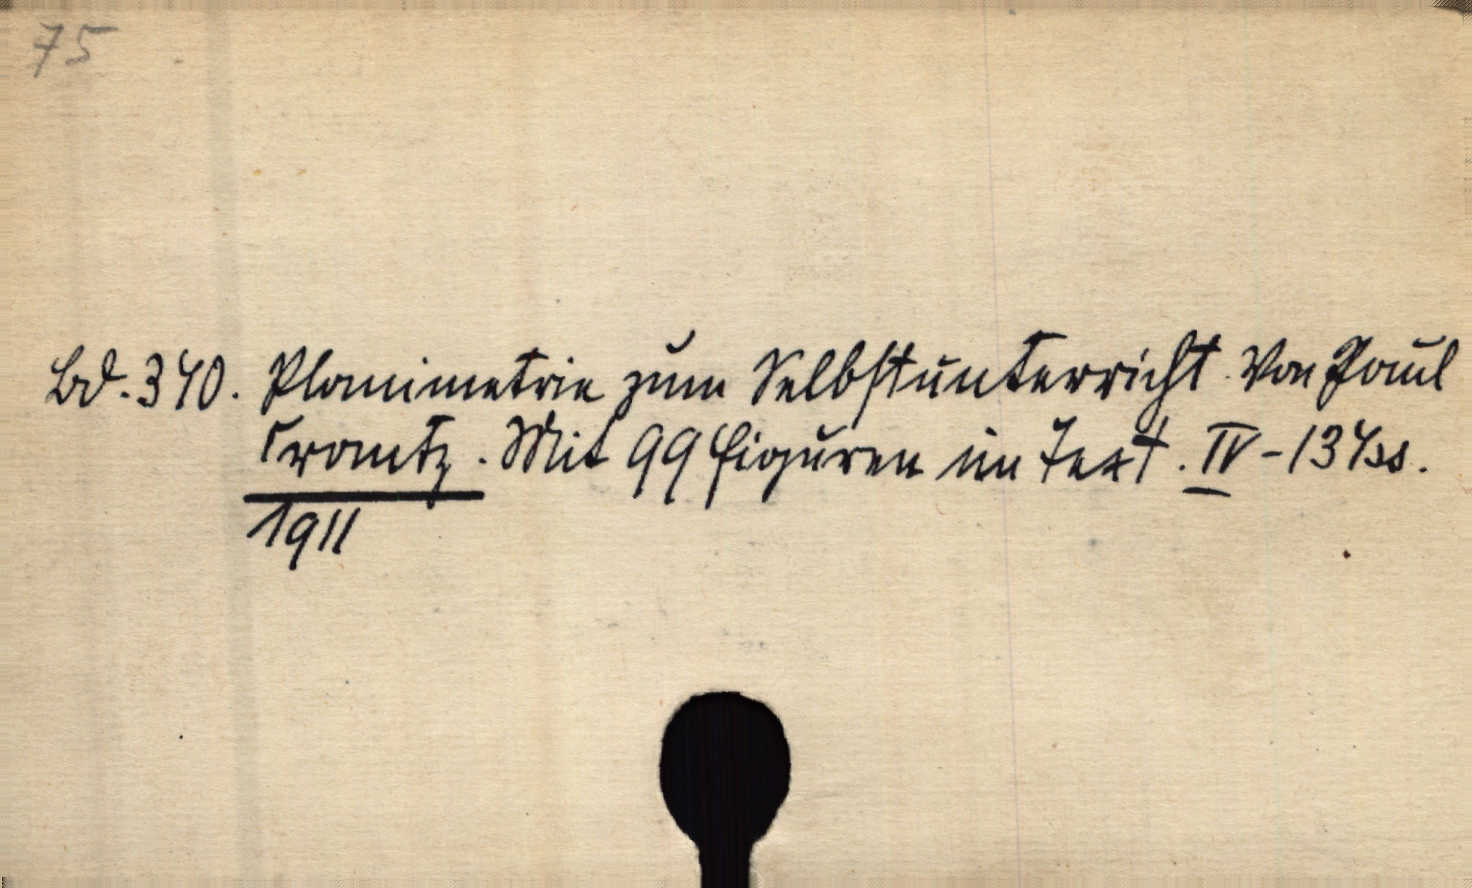 75
Bd. 340. Planimetrie zum Selbstunterricht. Von Paul
Crantz. Mit 99 Figuren im Text. IV - 134 ss.
1911